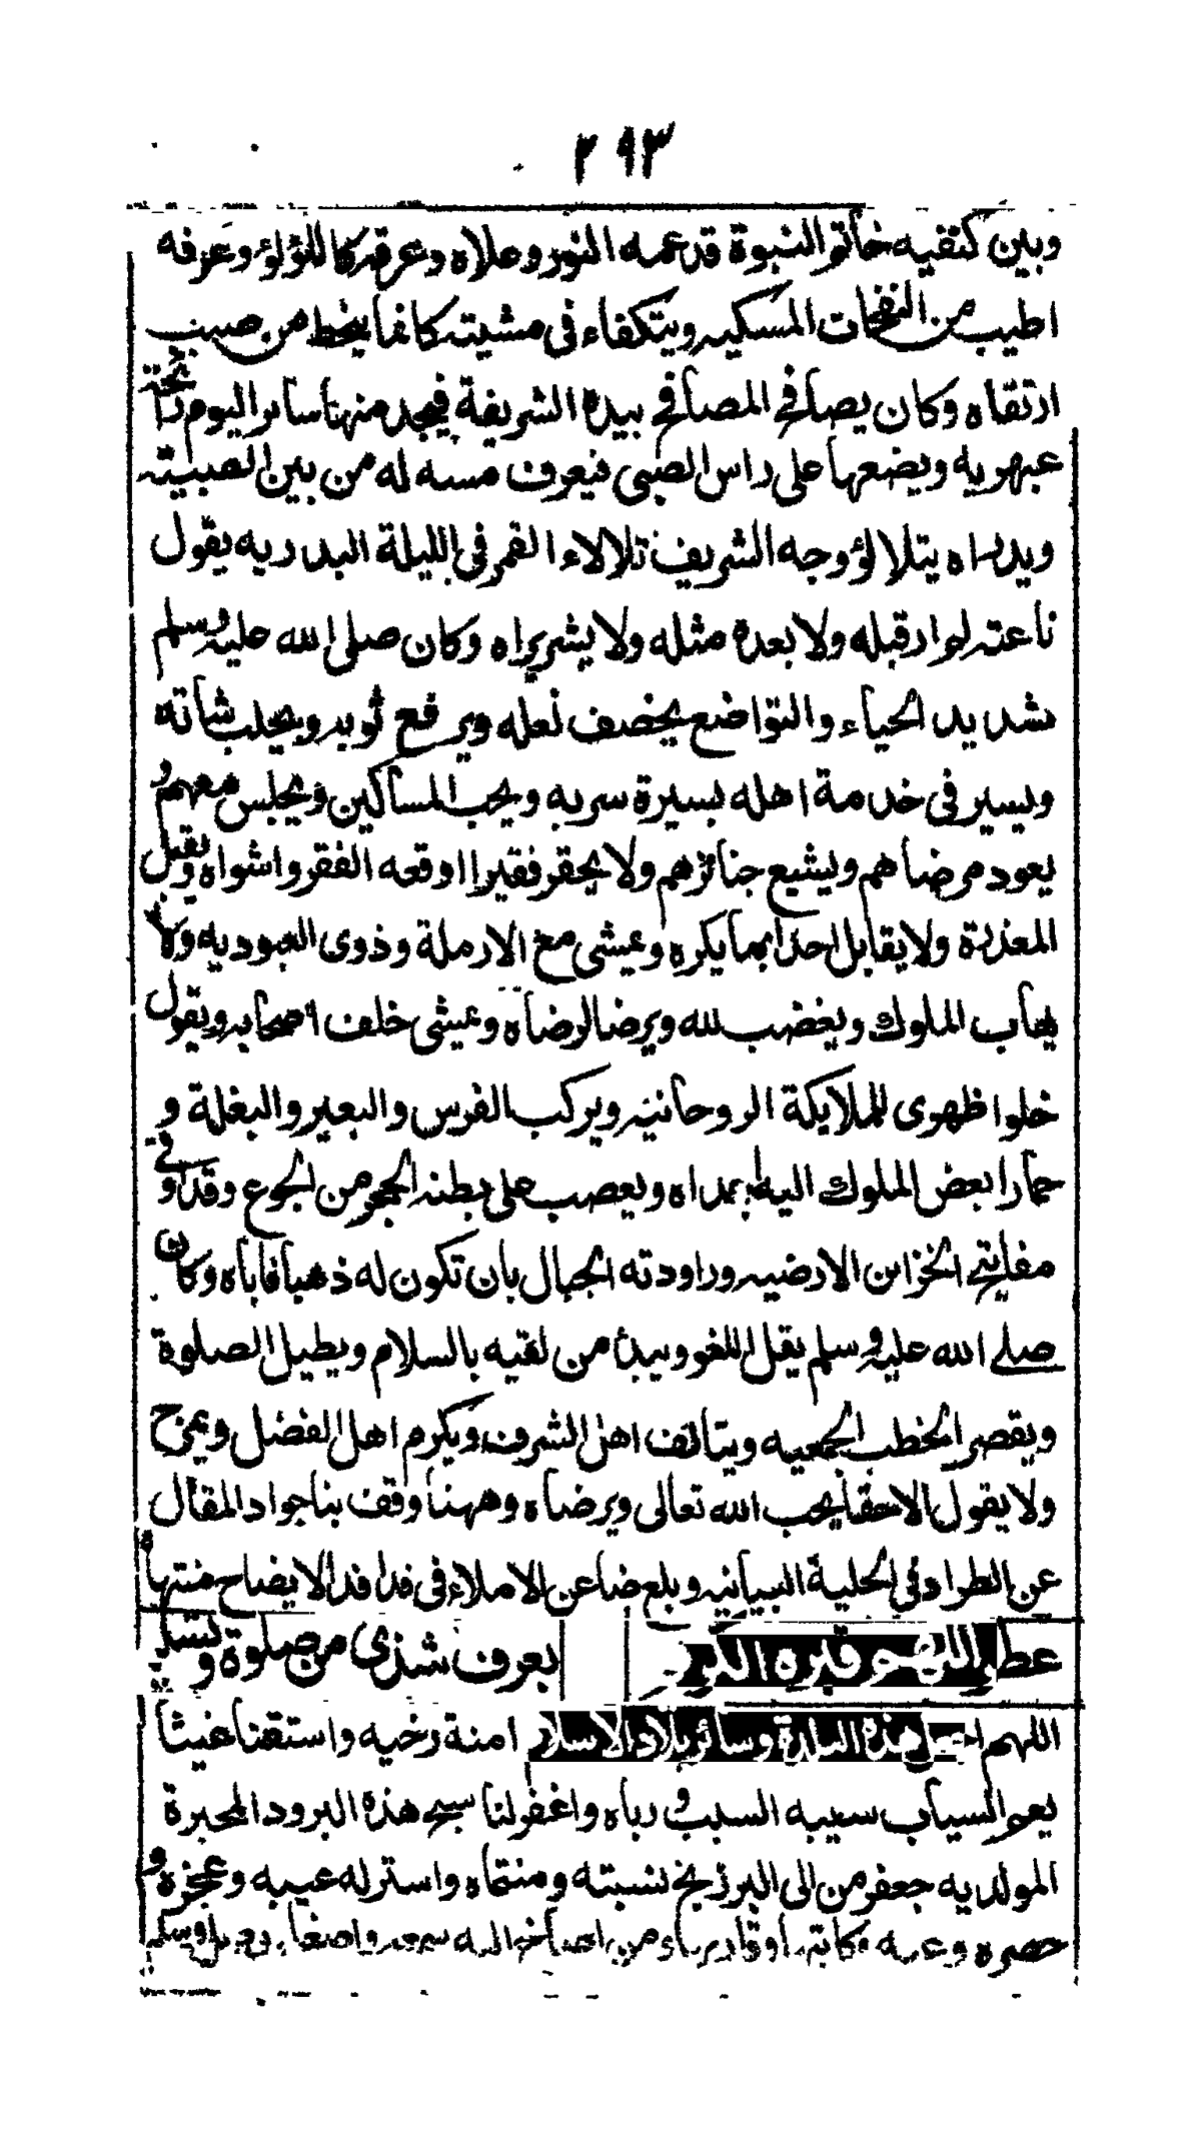 ٢٩٣
وبين كتفيه خاتم النبوة قد عمه النور وعلاه وعرقه كاللؤلؤ وعرفه
اطيب من النفحات المسكيه ويتكفاء في مشيته كانما ينحط من صبب
ارتقاه وكان يصافح المصافح بيده الشريفة فيجد منها سائر اليوم رائحة
عبهريه ويضعها على راس الصبي فيعرف مسه له من بين الصبيته
ويدراه يتلالؤ وجه الشريف تلالاء القمر في الليلة البدريه يقول
ناعته لم ار قبله ولا بعده مثله ولا بشر يراه وكان صلى الله عليه وسلم
شديد الحياء والتواضع يخصف نعله ويرقع ثوبه ويحلب شاته
ويسير في خدمة اهله بسيرة سريه ويحب المساكين ويجلس معهم و
يعود مرضاهم ويشيع جنائزهم ولا يحقر فقيرا اوقعه الفقر واشواه ويقبل
المعذرة ولا يقابل احدا بما يكره ويمشي مع الارملة وذوى العبوديه ولا
يهاب الملوك ويغضب لله ويرضا لرضاه ويمشي خلف اصحابه ويقول
خلوا ظهرى للملايكة الروحانيه ويركب الفرس والبعير والبغلة و
حمارا بعض الملوك اليه اهداه ويعصب على بطنه الحجر من الجوع وقد اوتي
مفاتيح الخزاين الارضيه وراودته الجبال بان تكون له ذهبا فاباه وكان
صلى الله عليه وسلم يقل اللغو ويبدأ من لقيه بالسلام ويطيل الصلوة
ويقصر الخطب الجمعيه ويتالف اهل الشرف ويكرم اهل الفضل ويمزح
ولا يقول الا حقا يحب الله تعالى ويرضاه وههنا وقف بنا جواد المقال
عن الطراد في الحلية البيانيه وبلغ ضاعن الاملاء في فدافد الايضاح منتهاه
عطر اللهم قبره الكريم بعرف شذي من صلوة وتسليم
اللهم اجعل هذه البلدة وسائر بلاد الاسلام امنة رخيه واسقنا غيثا
يعم السياب سيبه السبسب ورباه واغفر لنا سج هذه البرود المحبرة
المولديه جعفر من الى البرزنج نسبته ومنتماه واستر له عيبه وعجزه و
حصره وعيه وكاتبها وقاريها ومن اصاخ اليه سمعه واصغاه وصل وسلم